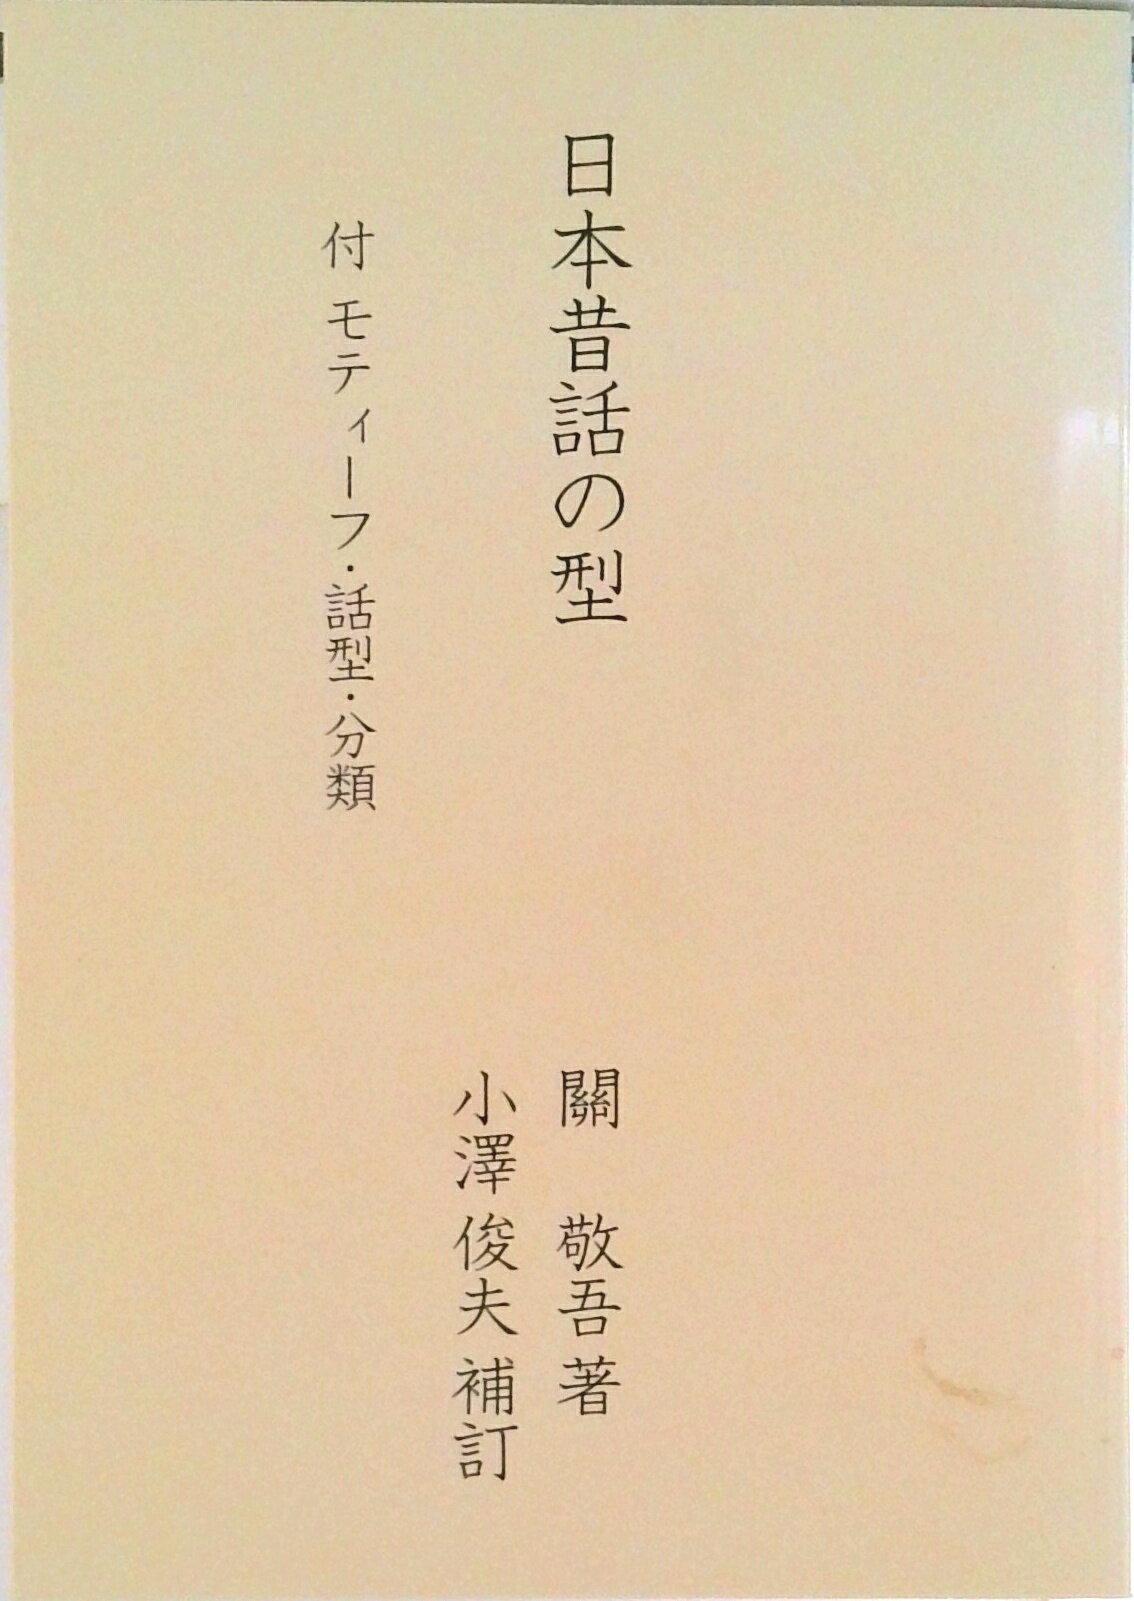 日本昔話の型
付 モティーフ・話型・分類
關 敬吾 著
小澤 俊夫 補訂